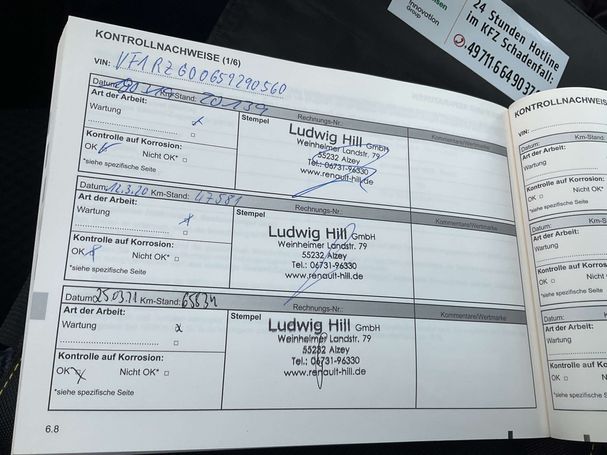 Innovation
Group
24 Stunden Hotline
im KFZ Schadenfall:
KONTROLLNACHWEISE (1/6)
VIN: VF1RZG00659290560
Datum: Km-Stand: 20139
Rechnungs-Nr.:
Kommentare/Wertmarke
Art der Arbeit:
Wartung
Stempel
Ludwig Hill GmbH
Weinheimer Landstr. 79
55232 Alzey
Tel.: 06731-96330
www.renault-hill.de
Kontrolle auf Korrosion:
OK Nicht OK*
*siehe spezifische Seite
Datum: 12.3.20 Km-Stand: 47581
Rechnungs-Nr.:
Kommentare/Wertmarke
Art der Arbeit:
Wartung
Stempel
Ludwig Hill GmbH
Weinheimer Landstr. 79
55232 Alzey
Tel.: 06731-96330
www.renault-hill.de
Kontrolle auf Korrosion:
OK Nicht OK*
*siehe spezifische Seite
Datum: 25.03.21 Km-Stand: 65834
Rechnungs-Nr.:
Kommentare/Wertmarke
Art der Arbeit:
Wartung
Stempel
Ludwig Hill GmbH
Weinheimer Landstr. 79
55232 Alzey
Tel.: 06731-96330
www.renault-hill.de
Kontrolle auf Korrosion:
OK Nicht OK*
*siehe spezifische Seite
6.8
KONTROLLNACHWEISE
VIN:
Datum: Km-Stand:
Art der Arbeit:
Wartung
Kontrolle auf Korrosion:
OK Nicht OK*
*siehe spezifische Seite
Datum:
Art der Arbeit:
Wartung
Kontrolle auf
OK
*siehe spezifische
Art der
Wartung
Kontrolle
OK
*siehe